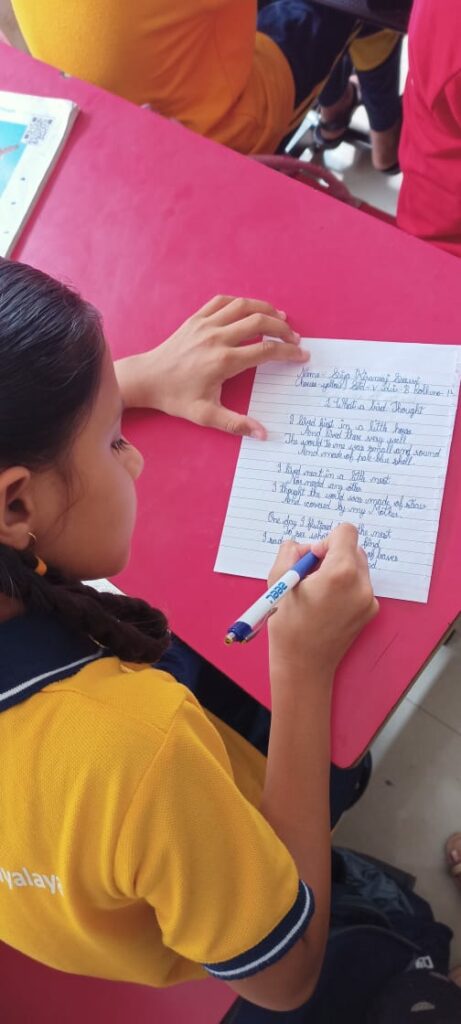 Name :-
House- yellow Std- V Div- B Roll no- 1
1. What a bird Thought
I lived first in a little house
And lived there very well
The world to me was small and round
And made of pale blue shell.
I lived next in a little nest
Nor need any other
I thought the world was made of straw
And covered by my Mother.
One day I flutterd the nest
to see what find
I said of leaves
yalaya